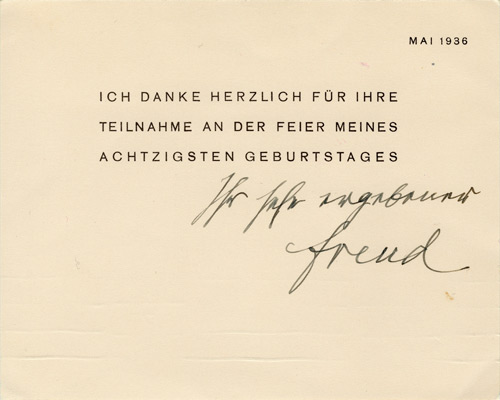 MAI 1936
ICH DANKE HERZLICH FÜR IHRE
TEILNAHME AN DER FEIER MEINES
ACHTZIGSTEN GEBURTSTAGES
Ihr sehr ergebener
Freud